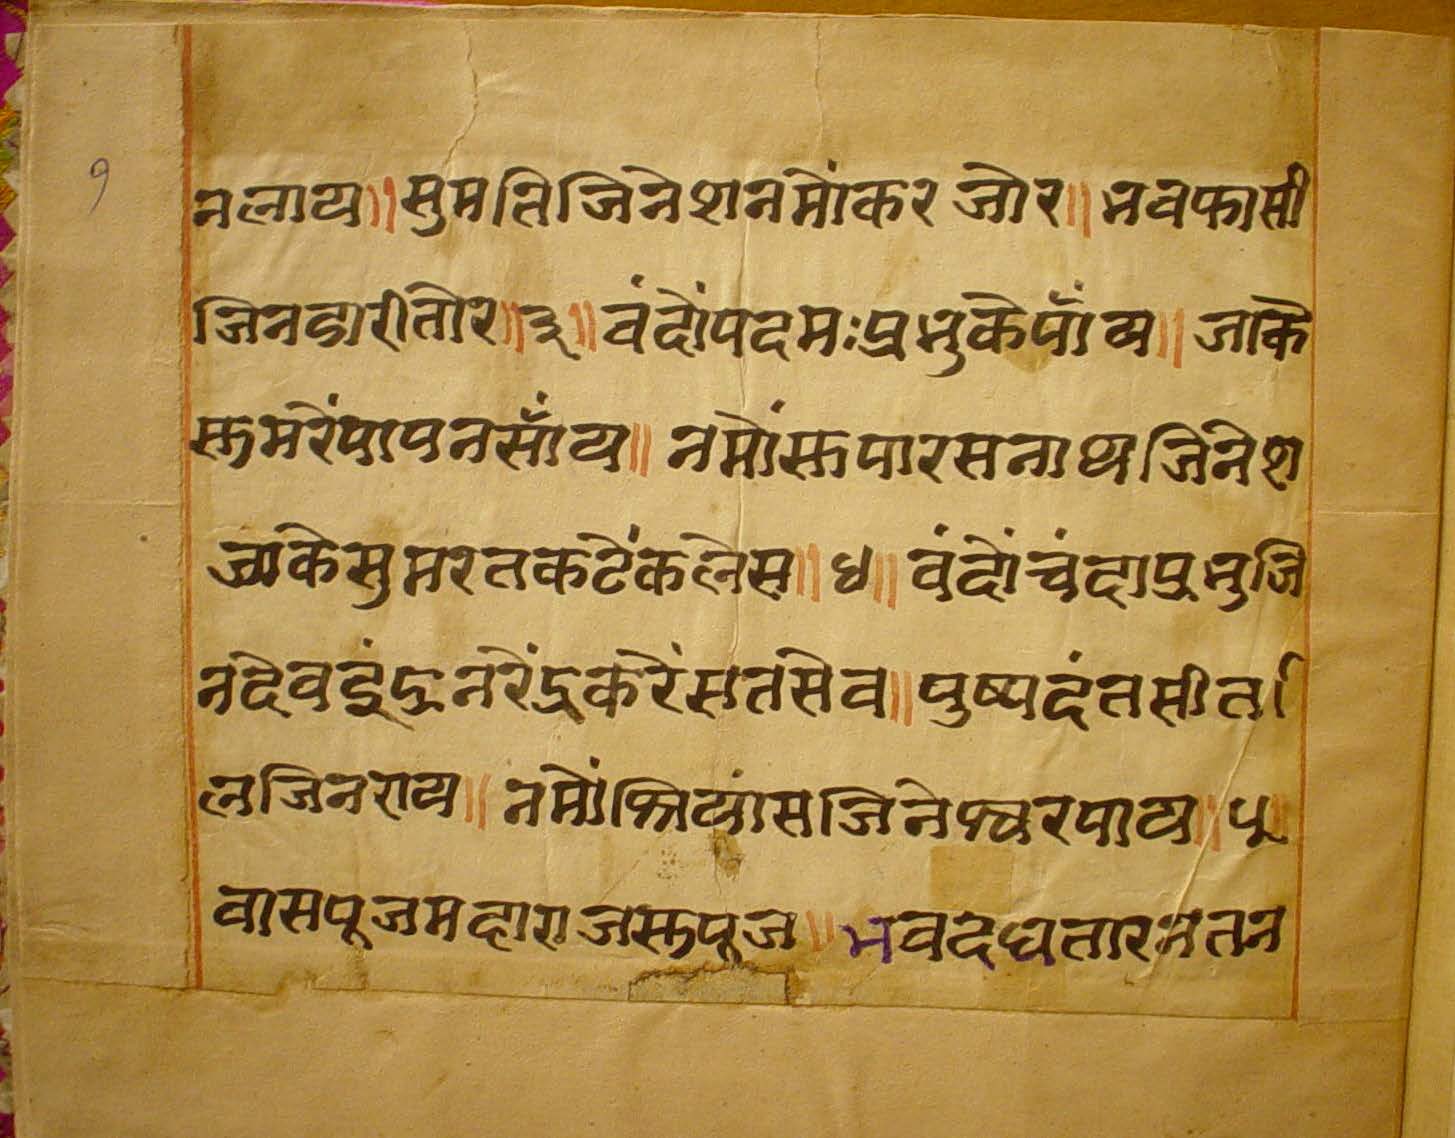 १
नलाय॥सुमतिजिनेशनमोंकरजोर॥भवफासी
जिनडारीतोर॥३॥वंदोंपदमःप्रभुकेपाँय॥जाके
स्तमरेंपापनसाँय॥नमोंस्तपारसनाथजिनेश
जाकेसुमरतकटेंकलेस॥४॥वंदोंचंदाप्रभुजि
नदेवइंद्रनरेंद्रकरेंसतसेव॥पुष्पदंतसीत
लजिनराय॥नमोंश्रियांसजिनेश्वरपाय॥५॥
वासपूजमहाराजस्तपूज॥भवदघतारनतन